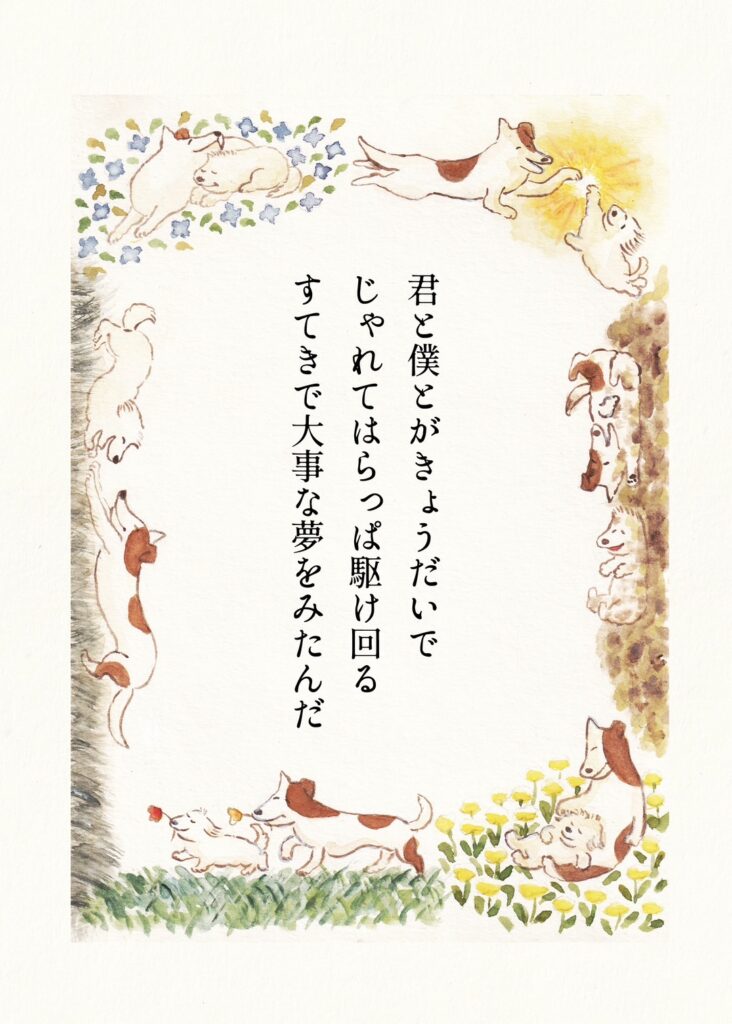 君と僕とがきょうだいで
じゃれてはらっぱ駆け回る
すてきで大事な夢をみたんだ